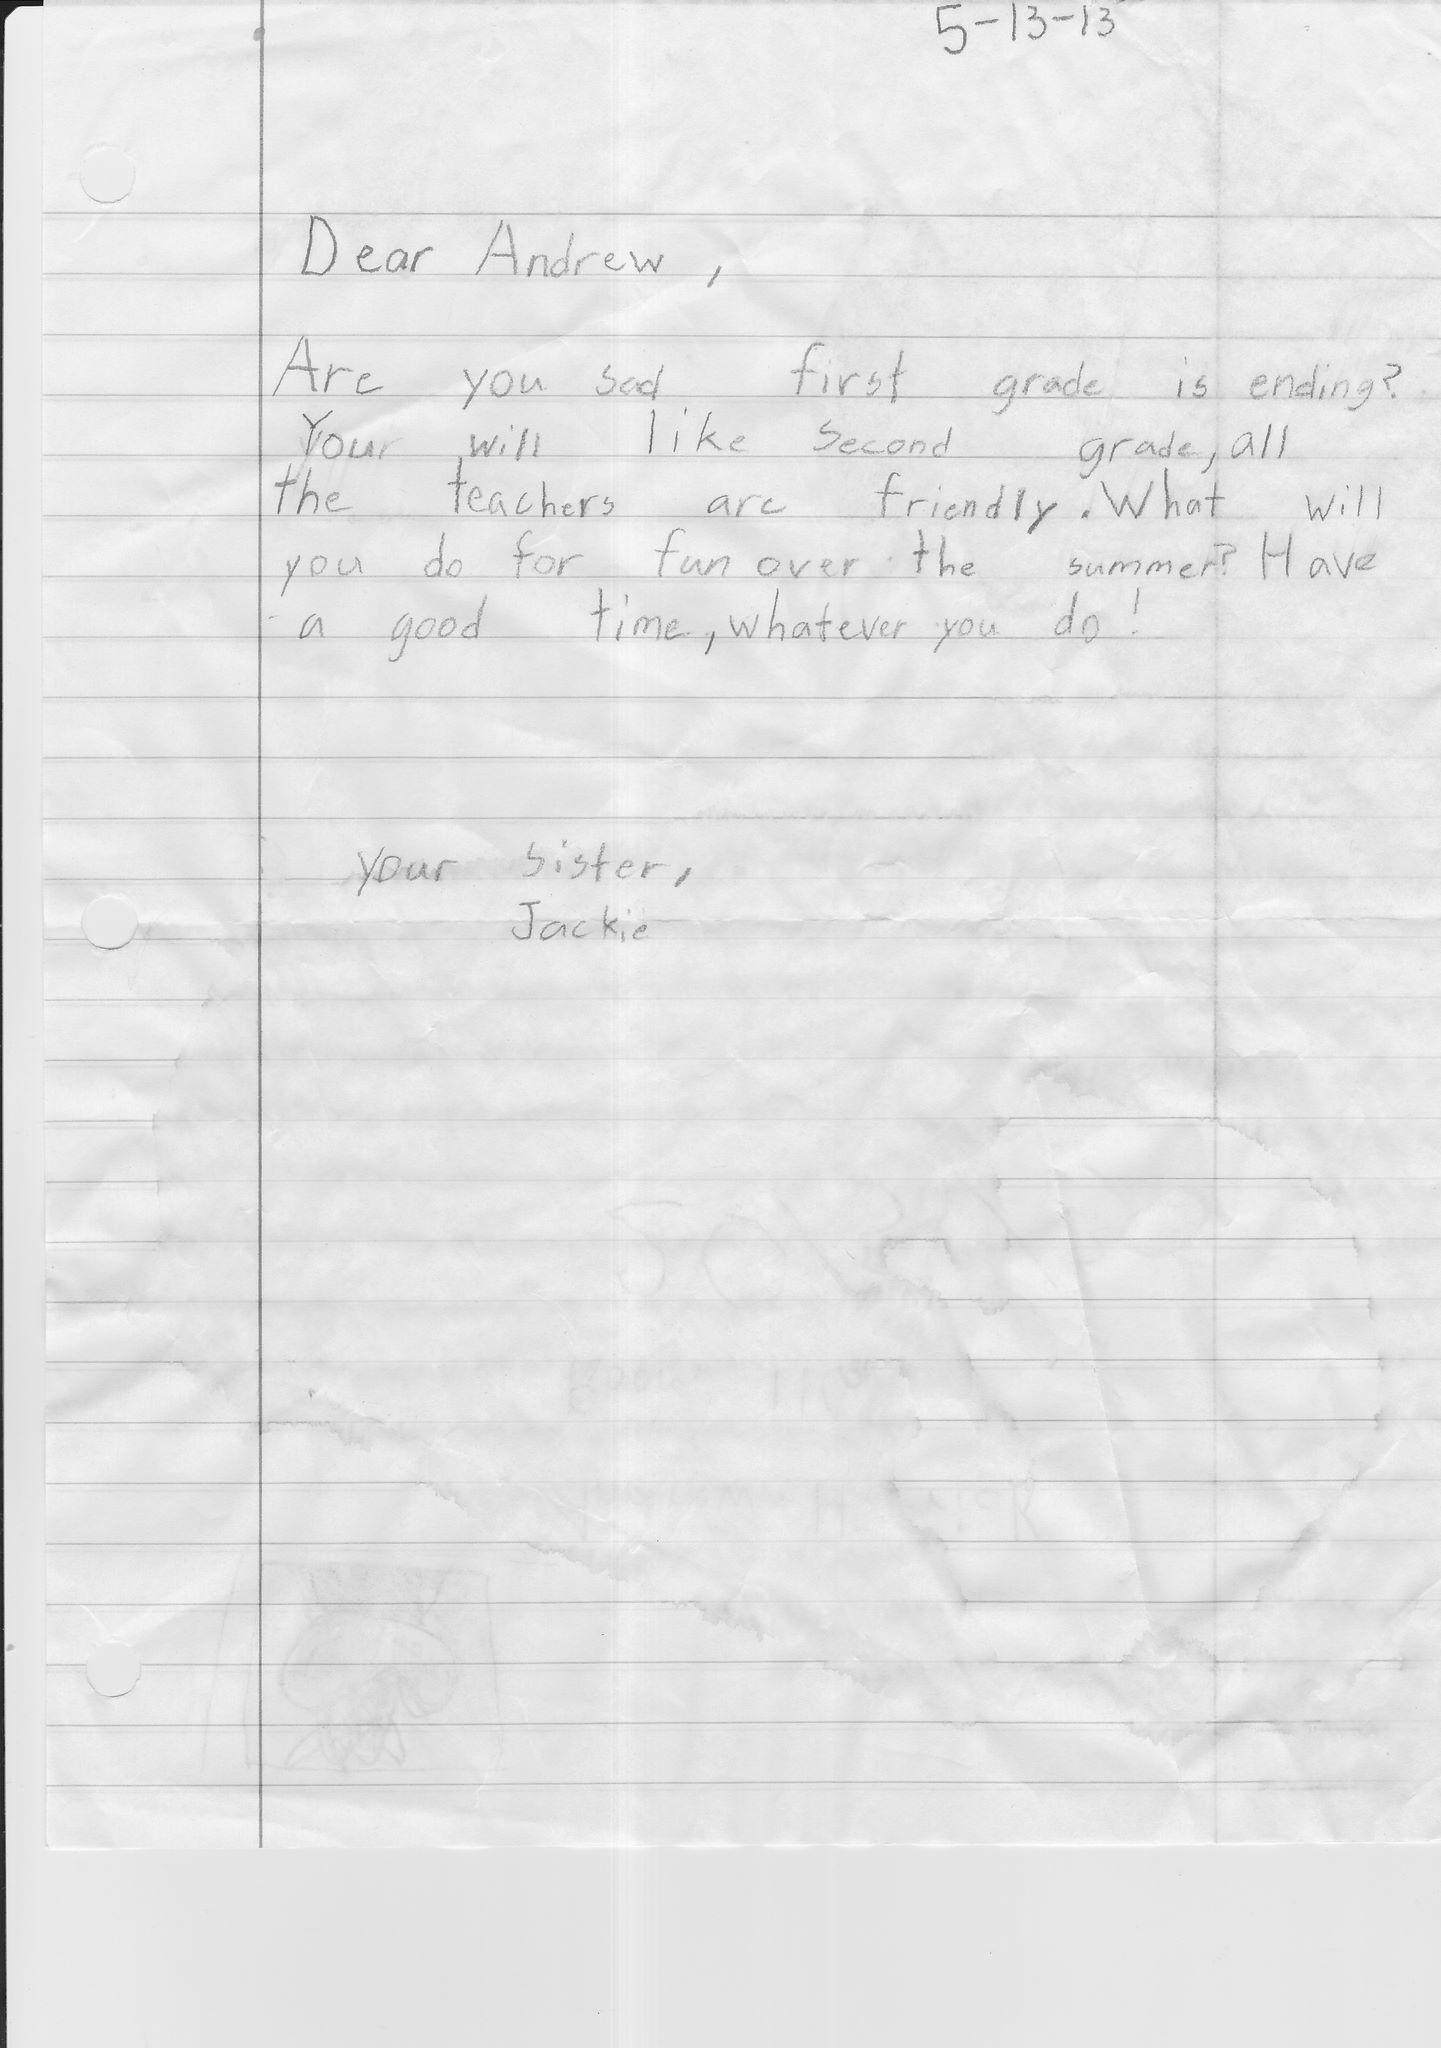 5-13-13
Dear Andrew,
Are you sad first grade is ending?
Your will like second grade, all
the teachers are friendly. What will
you do for fun over the summer? Have
a good time, whatever you do!
your sister,
Jackie